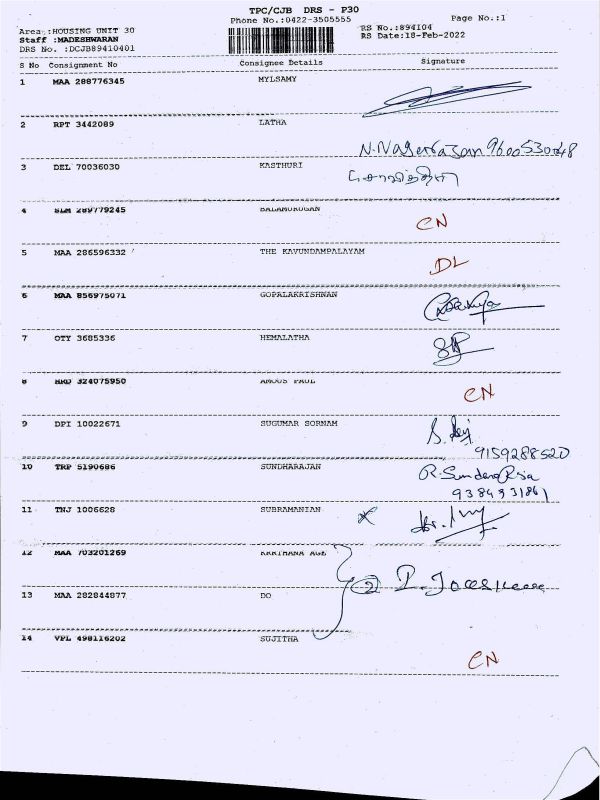 TPC/CJB DRS - P30
Phone No.:0422-3505555
Page No.:1
Area :HOUSING UNIT 30
RS No.:894104
Staff :MADESHWARAN
RS Date:18-Feb-2022
DRS No. :DCJB89410401
S No Consignment No Consignee Details Signature
1 MAA 288776345 MYLSAMY
2 RPT 3442089 LATHA
N. Nagarajan 9600530048
3 DEL 70036030 KASTHURI
4 289779245 BALAMURUGAN
CN
5 MAA 286596332 THE KAVUNDAMPALAYAM
DL
6 MAA 856975071 GOPALAKRISHNAN
7 OTY 3685336 HEMALATHA
8 324075950 AMOUS PAUL
CN
9 DPI 10022671 SUGUMAR SORNAM
9159288520
10 TRP 5190686 SUNDHARAJAN
R. Sundara Raja
11 TNJ 1006628 SUBRAMANIAN
12 MAA 703201269 KARTHANA AGE
2
13 MAA 282844877 DO
14 VPL 498116202 SUJITHA
CN